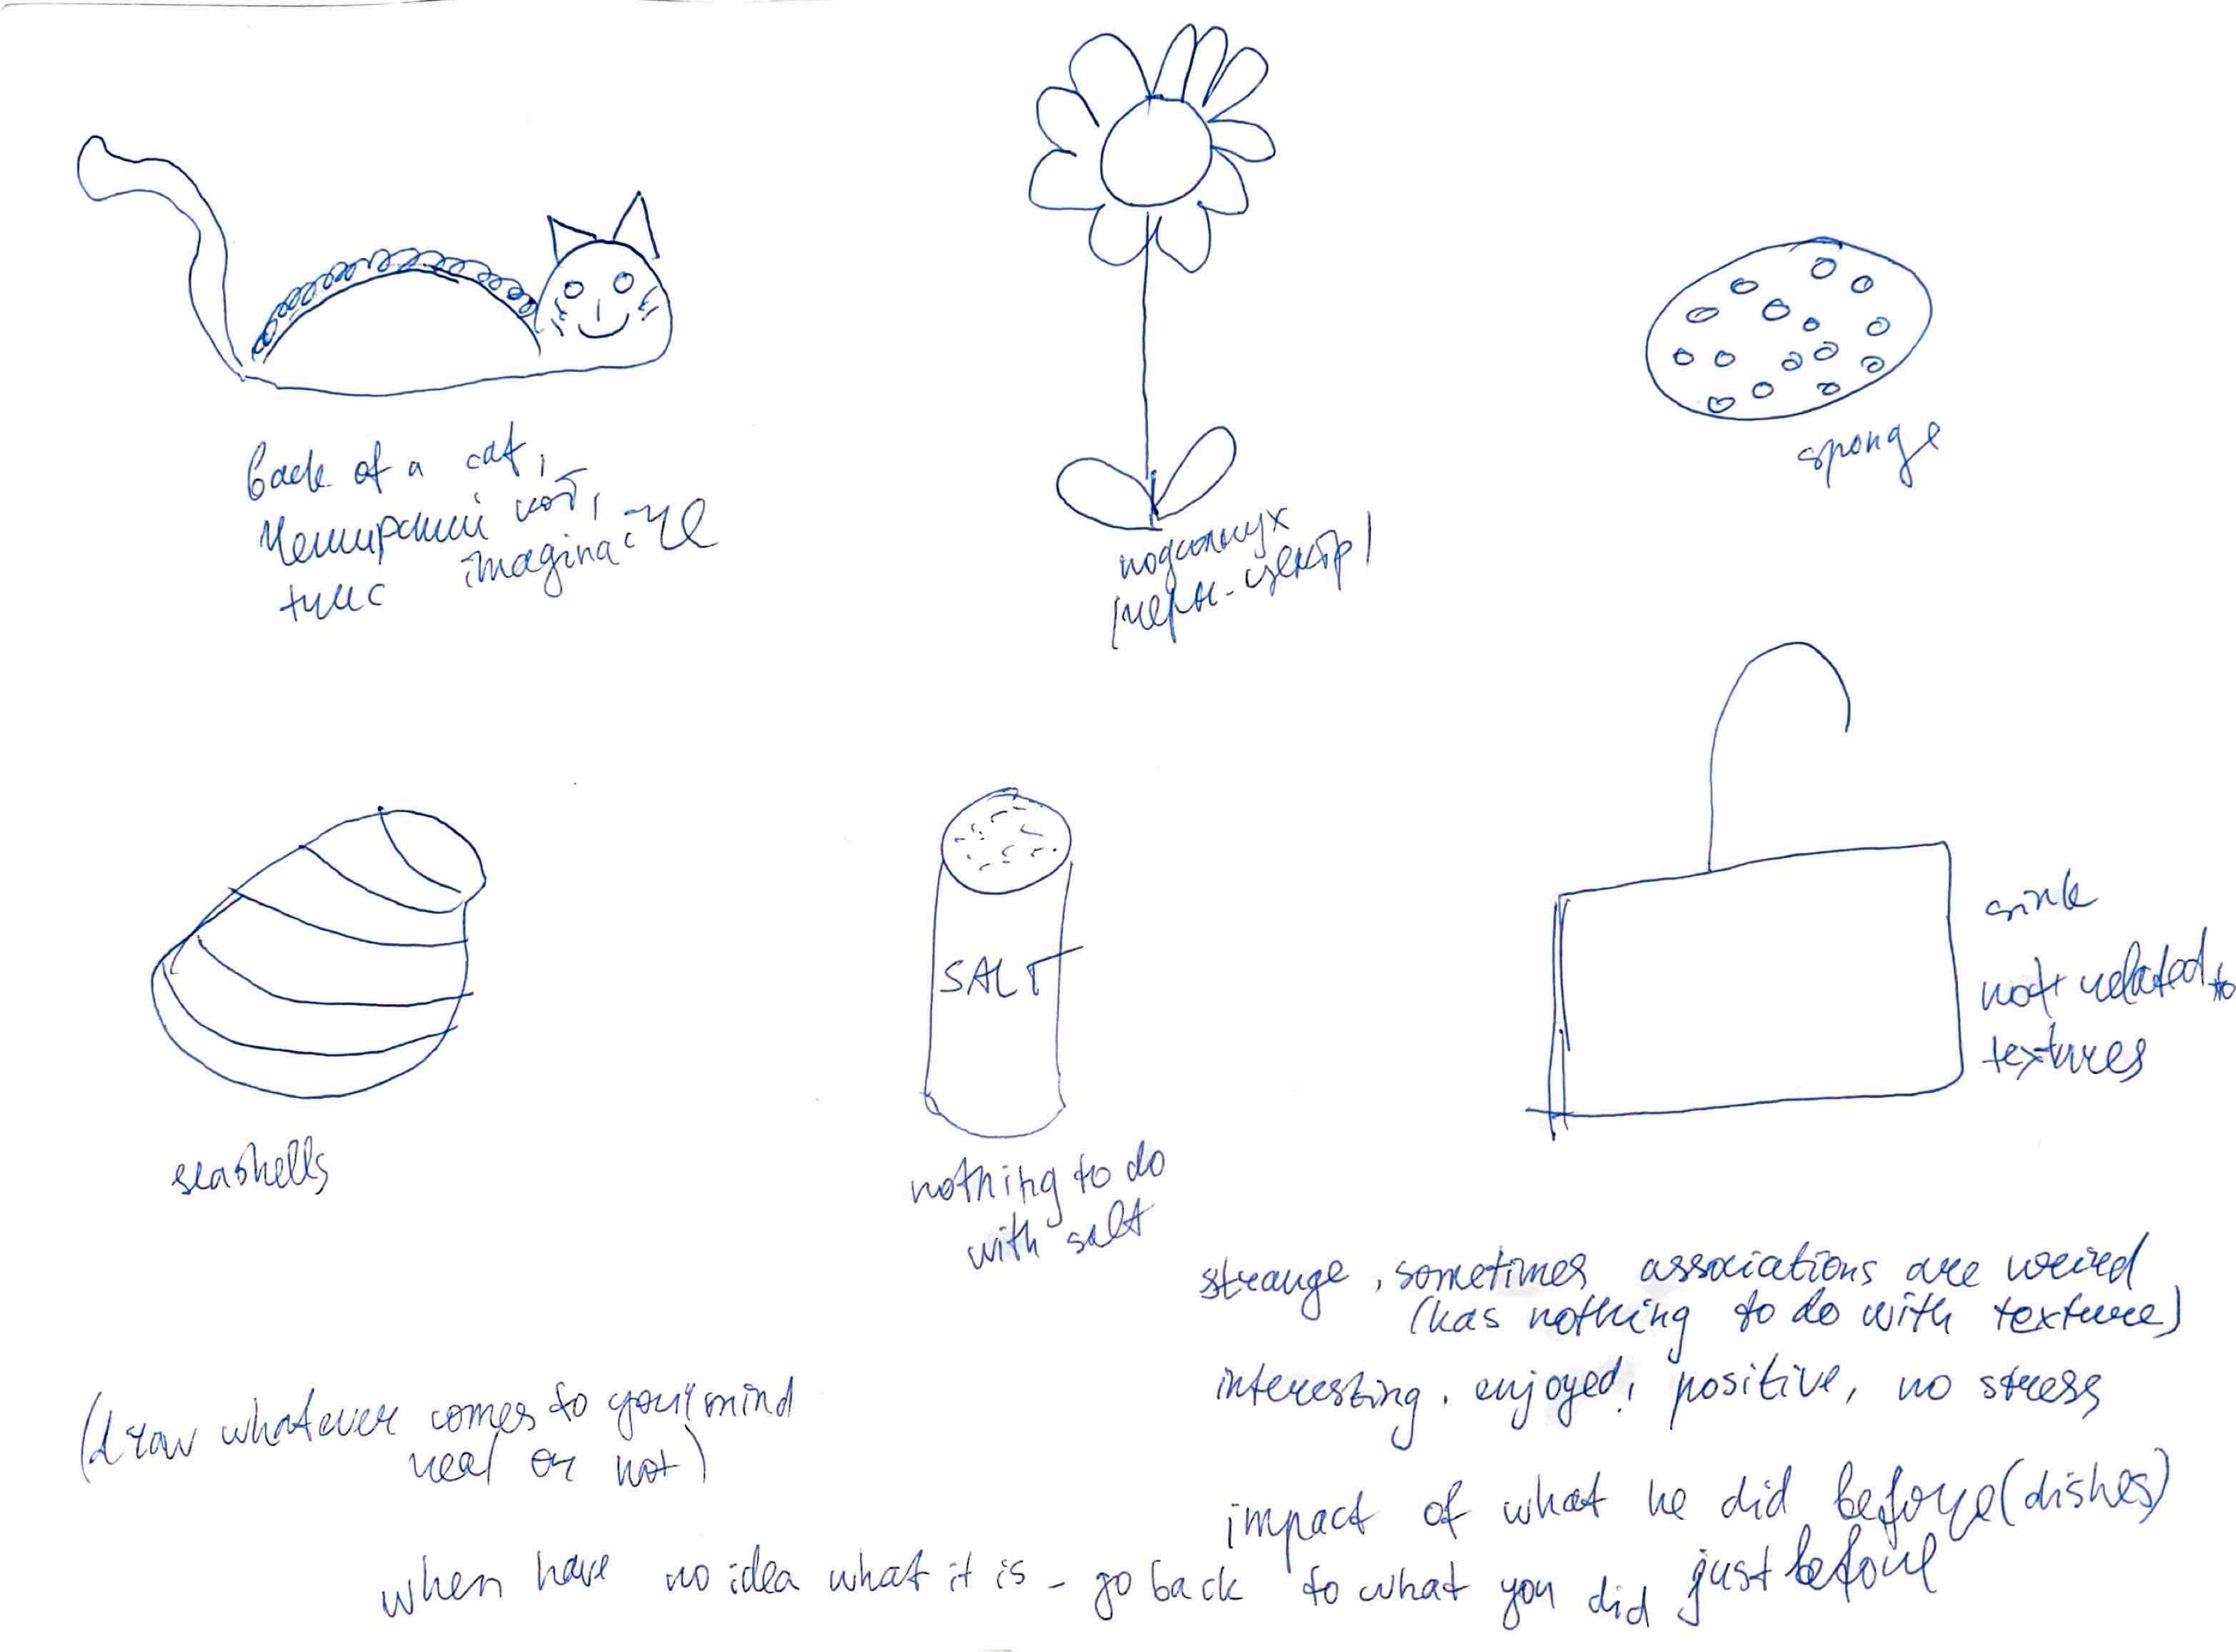 back of a cat,
Чеширский кот,
типс imagina-че
подсолнух
(черн. центр)
sponge
seashells
SALT
nothing to do
with salt
sink
not related to
textures
strange, sometimes associations are weird
(has nothing to do with texture)
interesting. enjoyed, positive, no stress
(draw whatever comes to your mind
real or not)
impact of what he did before (dishes)
when have no idea what it is - go back to what you did just before